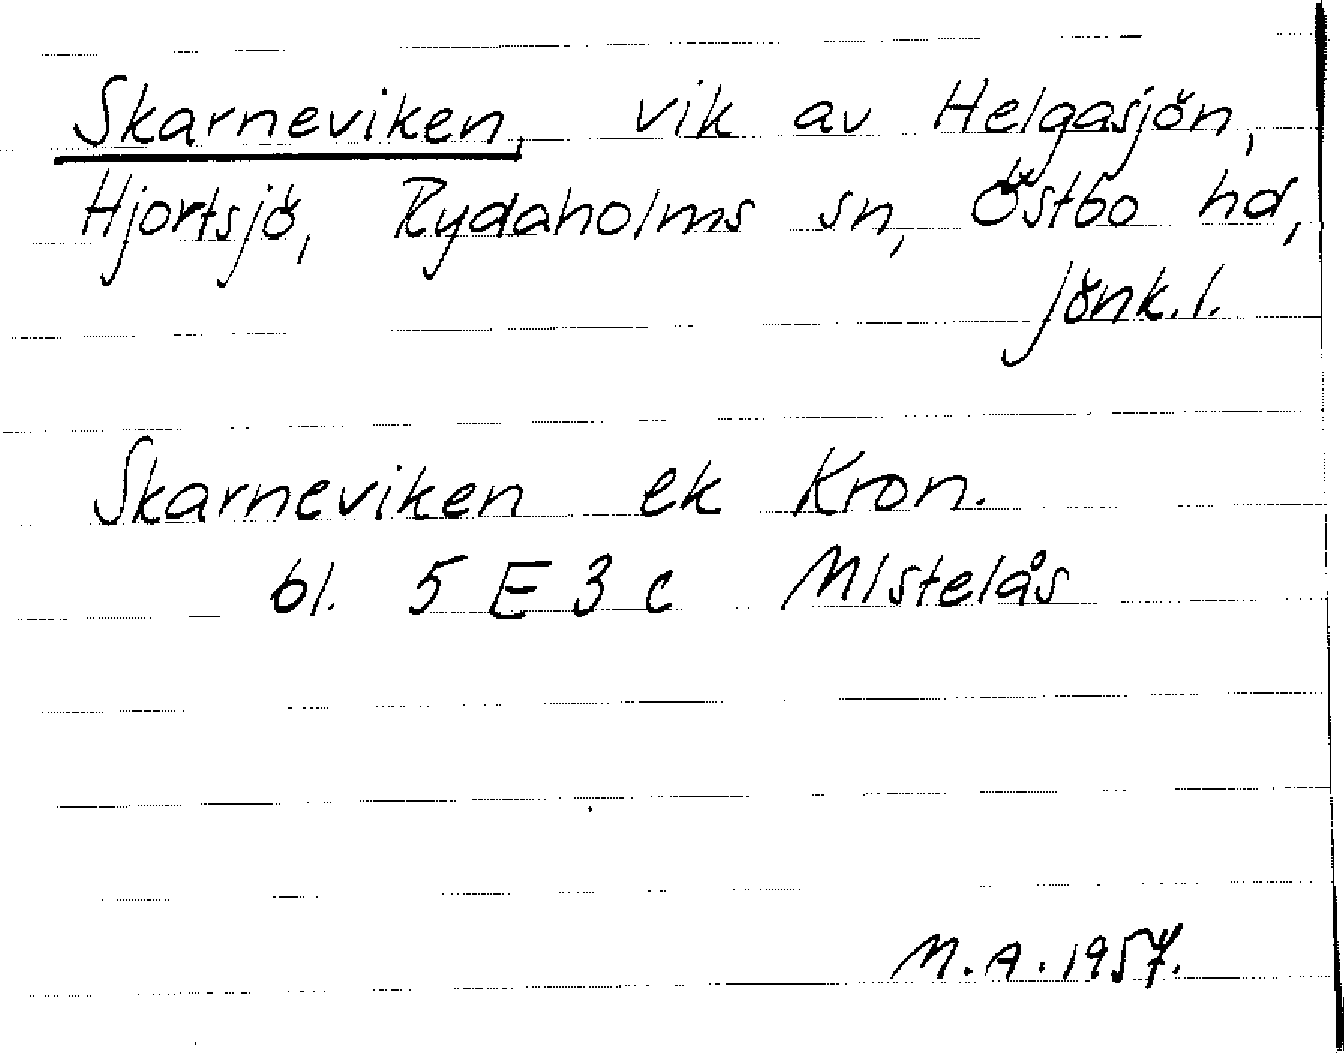 Skarneviken, vik av Helgasjön,
Hjortsjö, Rydaholms sn, Östbo hd,
Jönk. l.
Skarneviken ek Kron.
bl. 5 E 3 c Mistelås
M.A. 1957.